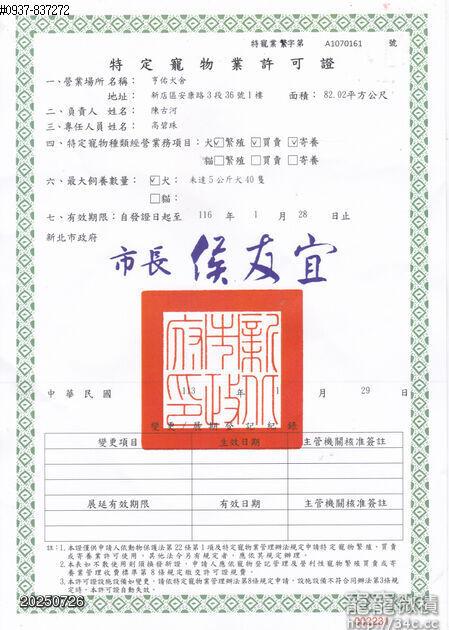 #0937-837272
特寵業繁字第 A1070161 號
特定寵物業許可證
一、營業場所名稱： 亨佑犬舍
地址： 新店區安康路3段36號1樓 面積： 82.02平方公尺
二、負責人姓名： 陳古河
三、專任人員姓名： 高碧珠
四、特定寵物種類經營業務項目：犬☑繁殖 ☑買賣 ☑寄養
貓□繁殖 □買賣 □寄養
六、最大飼養數量： ☑犬： 未達5公斤犬40隻
□貓：
七、有效期限：自發證日起至 116 年 1 月 28 日止
新北市政府
市長 侯友宜
新北市政府印
中華民國 113 年 1 月 29 日
變更/展期登記紀錄
變更項目 生效日期 主管機關核准簽註
展延有效期限 有效日期 主管機關核准簽註
註：1.本證僅供申請人依動物保護法第22條第1項及特定寵物業管理辦法規定申請特定寵物繁殖、買賣
或寄養業許可使用，其他法令另有規定者，應依其規定辦理。
2.本表如不敷使用則須換發新證，申請人應依寵物登記管理及營利性寵物繁殖買賣或寄
養業管理收費標準第8條規定繳交許可證費。
3.本許可證設施設備如變更，請依特定寵物業管理辦法第8條規定申請，設施設備不符合同辦法第3條規
定時，本許可證自動失效。
20250726
002231
龍龍微積
https://34c.cc